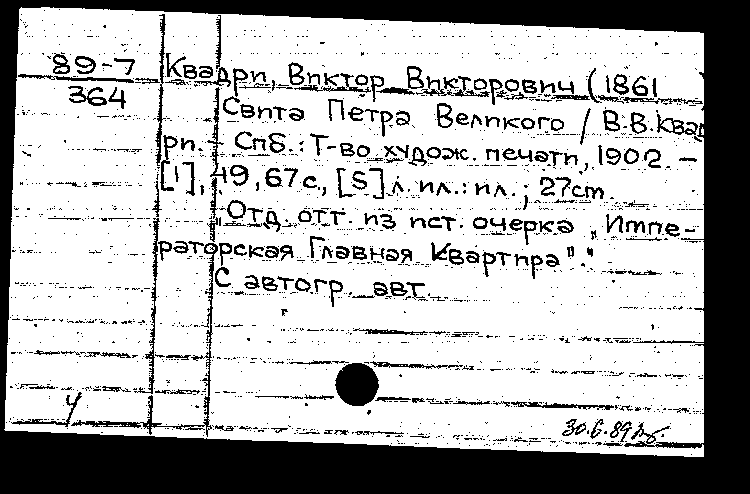 89-7
364
Квадри, Виктор Викторович (1861 )
Свита Петра Великого / В.В.Квад
ри. – Спб.: Т-во худож. печати, 1902. –
[1], 49, 67 с., [5] л. ил.: ил.; 27 cm.
„Отд. отт. из ист. очерка „Импе-
раторская Главная Квартира"."
С автогр. авт.
30.6.89